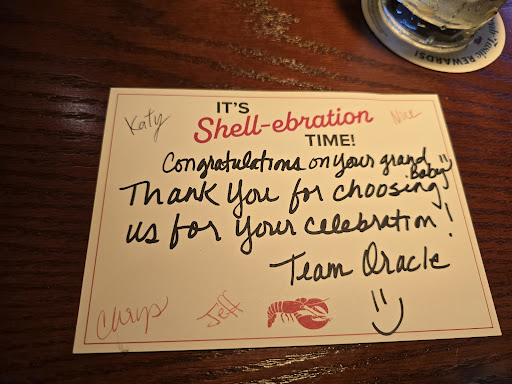 IT'S
Katy Shell-ebration
TIME!
Congratulations on your grand
Baby
Thank You for choosing
us for your celebration!
Team Oracle
Chrys Jeff
REWARDS!